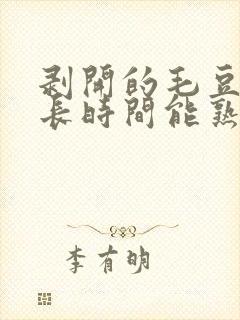 剥開的毛豆
長時間能熟
李有明